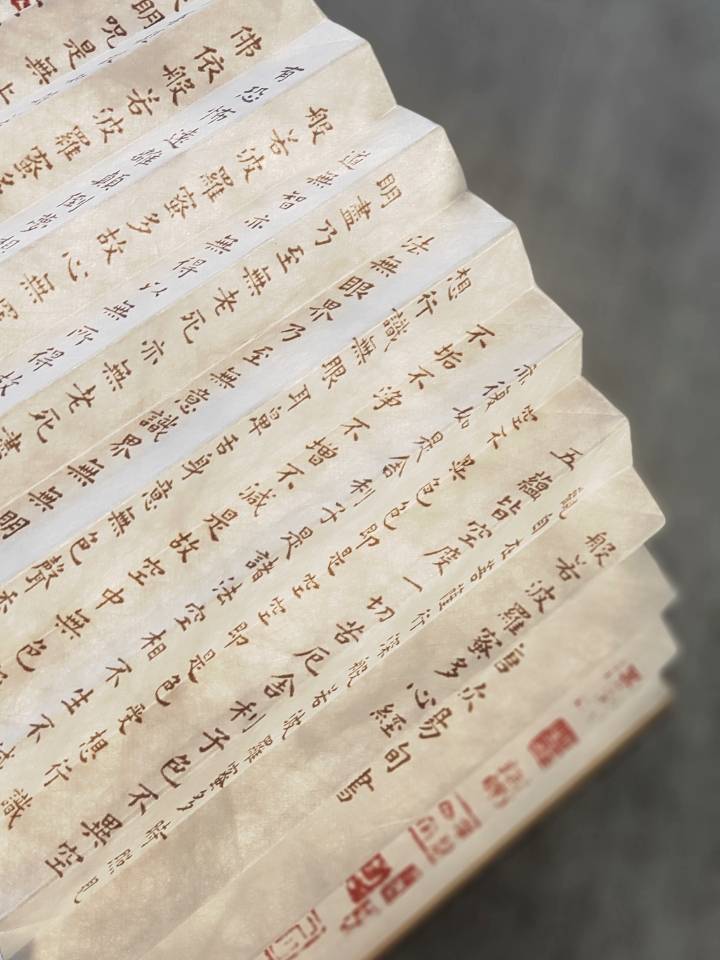 般若波羅蜜多心經
富次易旬
觀自在菩薩行深般若波羅蜜多時照見
五蘊皆空度一切苦厄舍利子色不異空
空不異色色即是空空即是色受想行識
亦復如是舍利子是諸法空相不生不滅
不垢不淨不增不減是故空中無色
想行識無眼耳鼻舌身意無色聲香
法無眼界乃至無意識界無無明
明盡乃至無老死亦無老死盡
道無智亦無得以無所得故
般若波羅蜜多故心無罣
有恐怖遠離顛倒夢想
佛依般若波羅蜜多
明咒是無上